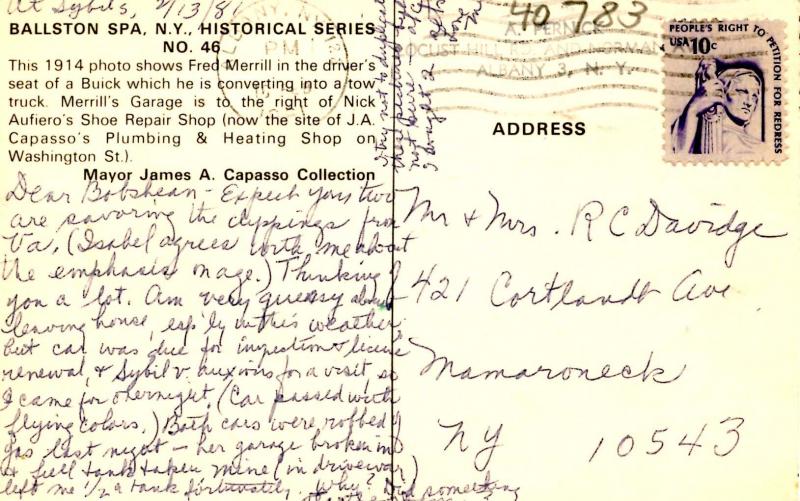 At Sybil's, 2/13/81
BALLSTON SPA, N.Y., HISTORICAL SERIES
NO. 46
This 1914 photo shows Fred Merrill in the driver's
seat of a Buick which he is converting into a tow
truck. Merrill's Garage is to the right of Nick
Aufiero's Shoe Repair Shop (now the site of J.A.
Capasso's Plumbing & Heating Shop on
Washington St.).
Mayor James A. Capasso Collection
Dear Bobshean - Expect you two
are savoring the clippings from
Va. (Isabel agrees with me about
the emphasis on age.) Thinking of
you a lot. Am very queasy about
leaving house, esp'ly in this weather
but car was due for inspection & license
renewal, & Sybil v. anxious for a visit so
I came for overnight. (Car passed with
flying colors.) Both cars were robbed of
gas last night - her garage broken into
& full tank taken mine (in driveway)
left me 1/2 a tank fortunately. Why? Did something
I try not to duplicate
not sure - at
I bought 2
40783
A. PERNICK
LOCUST HILL
ALBANY 3, N. Y.
PM
PEOPLE'S RIGHT TO PETITION FOR REDRESS
USA 10c
ADDRESS
Mr & Mrs. R C Davidge
421 Cortlandt Ave.
Mamaroneck
NY 10543